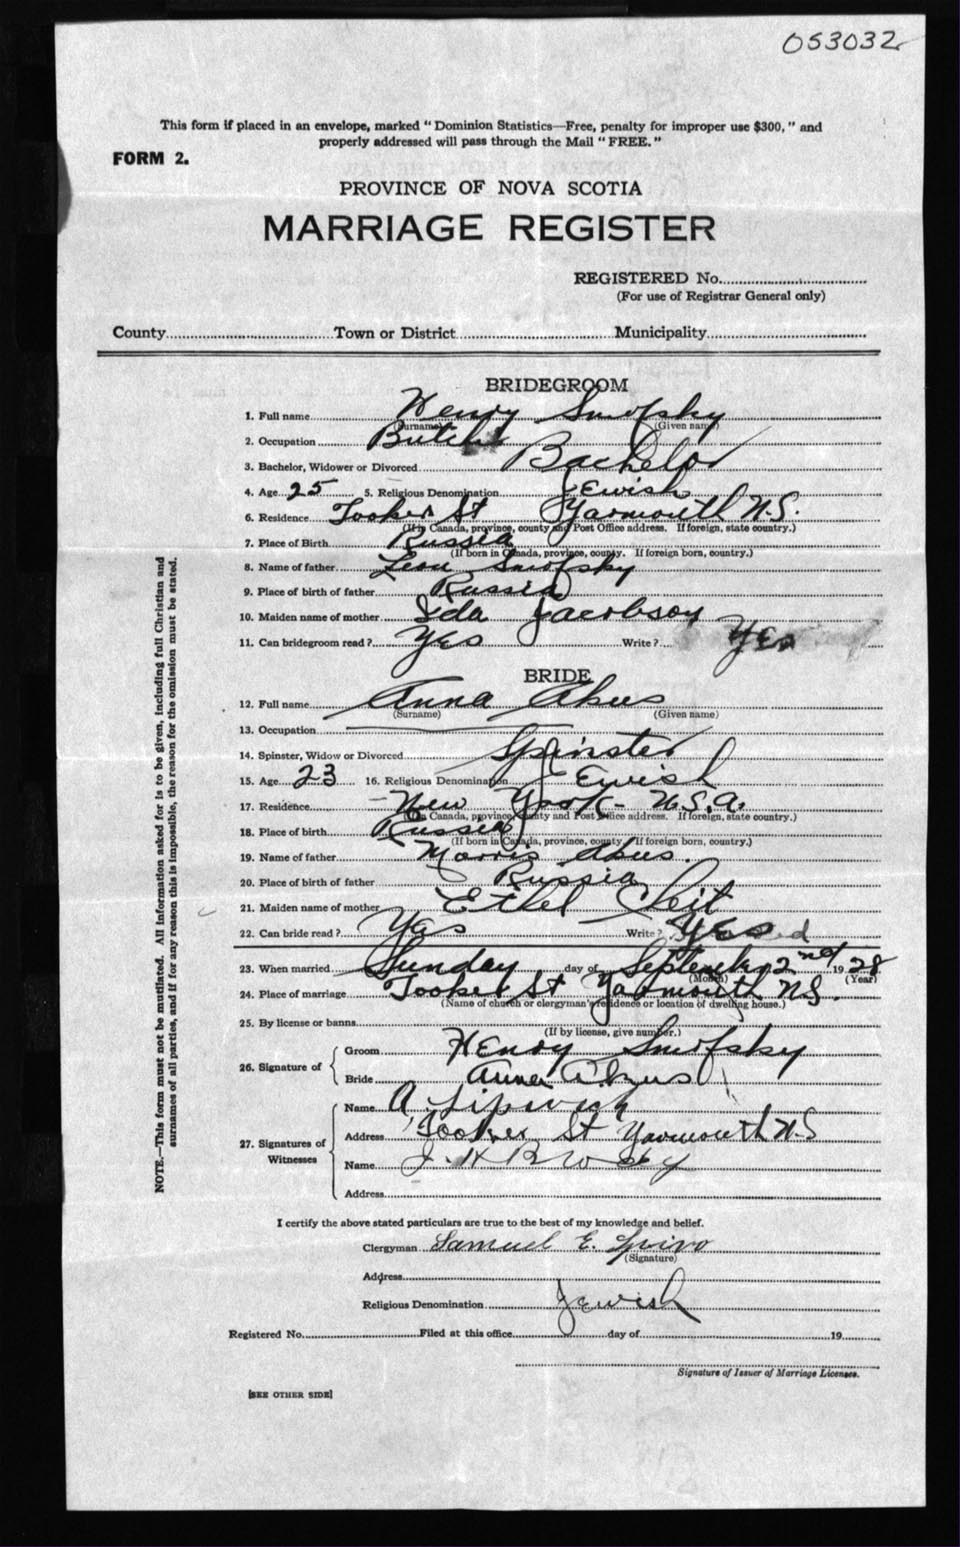 053032
This form if placed in an envelope, marked “ Dominion Statistics—Free, penalty for improper use $300, ” and
properly addressed will pass through the Mail “ FREE. ”
FORM 2.
PROVINCE OF NOVA SCOTIA
MARRIAGE REGISTER
REGISTERED No.
(For use of Registrar General only)
County Town or District Municipality
BRIDEGROOM
1. Full name Henry Smofsky
(Surname) (Given name)
2. Occupation
3. Bachelor, Widower or Divorced Bachelor
4. Age 25 5. Religious Denomination Jewish
6. Residence Tooker St Yarmouth N.S.
(If in Canada, province, county and Post Office address. If foreign, state country.)
7. Place of Birth Russia
(If born in Canada, province, county. If foreign born, country.)
8. Name of father Leon Smofsky
9. Place of birth of father Russia
10. Maiden name of mother Ida Jacobson
11. Can bridegroom read ? Yes Write ? Yes
BRIDE
12. Full name Anna Akus
(Surname) (Given name)
13. Occupation
14. Spinster, Widow or Divorced Spinster
15. Age 23 16. Religious Denomination Jewish
17. Residence New York - U.S.A.
(If in Canada, province, county and Post Office address. If foreign, state country.)
18. Place of birth Russia
(If born in Canada, province, county. If foreign born, country.)
19. Name of father Morris Akus.
20. Place of birth of father Russia
21. Maiden name of mother Ethel
22. Can bride read ? Yas Write ? Yes
23. When married Sunday day of September 2nd 1928
(Month) (Year)
24. Place of marriage Tooker St Yarmouth N.S.
(Name of church or clergyman's residence or location of dwelling house.)
25. By license or banns
(If by license, give number.)
26. Signature of
Groom Henry Smofsky
Bride Anna Akus
27. Signatures of
Witnesses
Name A Lipwich
Address Tooker St Yarmouth N-S
Name J. H
Address
I certify the above stated particulars are true to the best of my knowledge and belief.
Clergyman Samuel E. Spiro
(Signature)
Address
Religious Denomination Jewish
Registered No. Filed at this office day of 19
Signature of Issuer of Marriage Licenses.
[SEE OTHER SIDE]
NOTE.—This form must not be mutilated. All information asked for is to be given, including full Christian and
surnames of all parties, and if for any reason this is impossible, the reason for the omission must be stated.